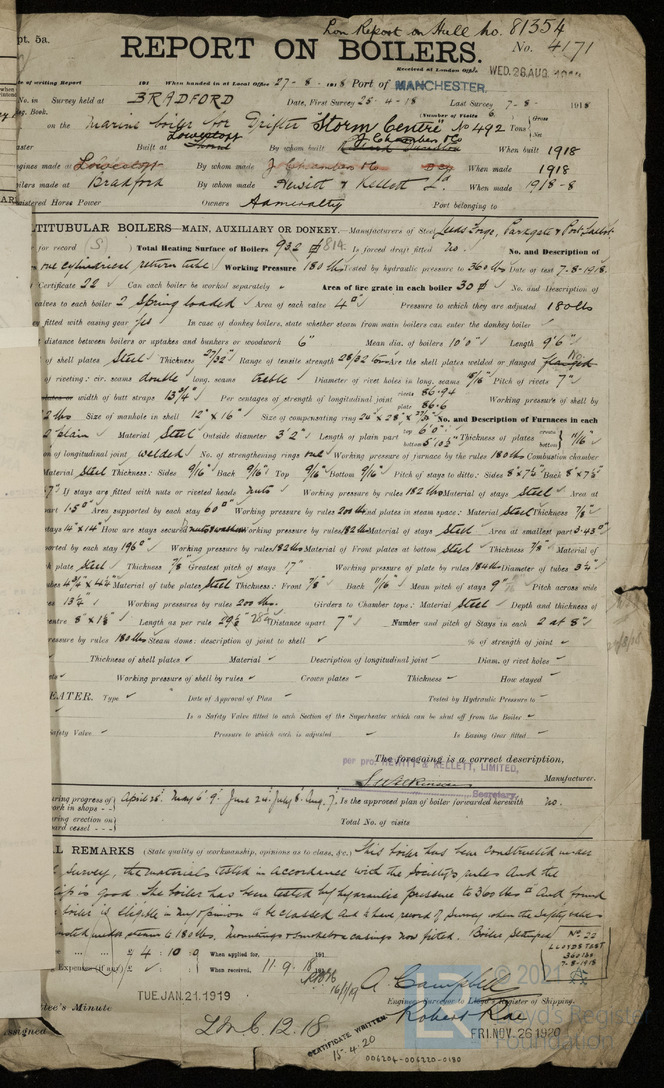 Lon Report on Hull No. 81354
pt. 5a.
REPORT ON BOILERS.
No. 4171
Received at London Office WED. 28 AUG. 1918
of writing Report 191 When handed in at Local Office 27-8-1918 Port of MANCHESTER.
No. in Survey held at BRADFORD Date, First Survey 25-4-18 Last Survey 7-8-1918
Reg. Book. (Number of Visits 6
on the Marine boiler for Drifter "Storm Centre" No 492 Tons Gross Net
Master Built at Lowestoft By whom built J. Chambers & Co When built 1918
Engines made at Lowestoft By whom made J. Chambers & Co When made 1918
Boilers made at Bradford By whom made Hewitt & Kellett Ld. When made 1918-8
Registered Horse Power Owners Admiralty Port belonging to
LTITUBULAR BOILERS—MAIN, AUXILIARY OR DONKEY.—Manufacturers of Steel Leeds Forge, Parkgate & Port Talbot
for record (S) Total Heating Surface of Boilers 932 814 Is forced draft fitted no No. and Description of
one cylindrical return tube Working Pressure 180 lbs Tested by hydraulic pressure to 360 lbs Date of test 7-8-1918.
Certificate 22 Can each boiler be worked separately Area of fire grate in each boiler 30 No. and Description of
valves to each boiler 2 Spring loaded Area of each valve 4 Pressure to which they are adjusted 180 lbs
fitted with easing gear yes In case of donkey boilers, state whether steam from main boilers can enter the donkey boiler
distance between boilers or uptakes and bunkers or woodwork 6" Mean dia. of boilers 10'0" Length 9'6"
of shell plates Steel Thickness 27/32" Range of tensile strength 28/32 tons Are the shell plates welded or flanged
of riveting: cir. seams double long. seams treble Diameter of rivet holes in long. seams 15/16" Pitch of rivets 7"
width of butt straps 13 3/4" Per centages of strength of longitudinal joint rivets 86.94 plate 86.6 Working pressure of shell by
lbs Size of manhole in shell 12" x 16" Size of compensating ring No. and Description of Furnaces in each
2 plain Material Steel Outside diameter 3'2" Length of plain part top 6'0" bottom Thickness of plates crown bottom 11/16"
of longitudinal joint welded No. of strengthening rings one Working pressure of furnace by the rules 180 lbs Combustion chamber
Material Steel Thickness: Sides 9/16" Back 9/16" Top 9/16" Bottom 9/16" Pitch of stays to ditto: Sides 8" x 7 1/2" Back 8" x 7 1/2"
7" If stays are fitted with nuts or riveted heads nuts Working pressure by rules 182 lbs Material of stays Steel Area at
part 1.5 Area supported by each stay 60 Working pressure by rules 200 lbs End plates in steam space: Material Steel Thickness 7/8"
stays 14" x 14" How are stays secured nuts & washers Working pressure by rules 182 lbs Material of stays Steel Area at smallest part 3.43
supported by each stay 196 Working pressure by rules 182 lbs Material of Front plates at bottom Steel Thickness 7/8" Material of
plate Steel Thickness 7/8" Greatest pitch of stays 17" Working pressure of plate by rules 184 lbs Diameter of tubes 3 1/4"
tubes 4 3/4" x 4 1/2" Material of tube plates Steel Thickness: Front 7/8" Back 11/16" Mean pitch of stays 9" Pitch across wide
13 1/4" Working pressures by rules 200 lbs. Girders to Chamber tops: Material Steel Depth and thickness of
centre 8" x 1 1/8" Length as per rule Distance apart 7" Number and pitch of Stays in each 2 at 8"
pressure by rules 180 lbs Steam dome: description of joint to shell % of strength of joint
Thickness of shell plates Material Description of longitudinal joint Diam. of rivet holes
Working pressure of shell by rules Crown plates Thickness How stayed
EATER. Type Date of Approval of Plan Tested by Hydraulic Pressure to
Is a Safety Valve fitted to each Section of the Superheater which can be shut off from the Boiler
Safety Valve Pressure to which each is adjusted Is Easing Gear fitted
The foregoing is a correct description,
per pro. HEWITT & KELLETT, LIMITED,
Manufacturer.
Secretary.
during progress of work in shops - - April 25. May 6. 9. June 24. July 8. Aug. 7. Is the approved plan of boiler forwarded herewith no.
during erection on board vessel - - - Total No. of visits
L REMARKS (State quality of workmanship, opinions as to class, &c.) This boiler has been constructed under
Survey, the materials tested in accordance with the Society's rules and the
is good. The boiler has been tested by hydraulic pressure to 360 lbs and found
boiler is eligible in my opinion to be classed and to have record of Survey when the safety valves
under steam to 180 lbs. Mountings & smokebox casings now fitted. Boiler Stamped
No 22
LLOYDS TEST
360 lbs
7-8-1918
£ 4 : 10 : 0 When applied for, 191
Expenses (if any) £ When received, 11.9.18 191
16/1/19
A. Campbell
Engineer Surveyor to Lloyd's Register of Shipping.
Robert Rae
© 2021
Lloyd's Register
Foundation
TUE. JAN. 21 1919
FRI. NOV. 26 1920
ttee's Minute
Assigned
L.M.C. 12.18
CERTIFICATE WRITTEN
15.4.20
006204-006220-0180